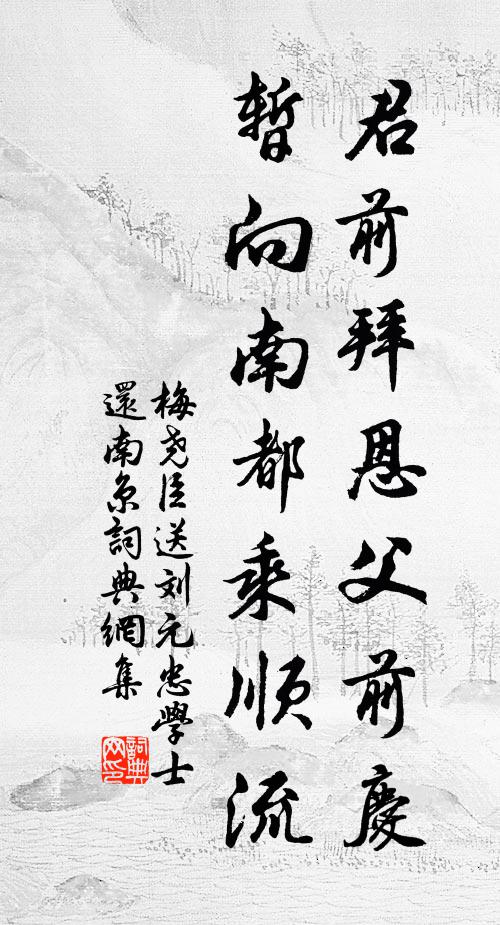 君前拜恩父前慶
暫向南都乘順流
梅尧臣送刘元忠學士
還南京詞典網集
詞典
网印